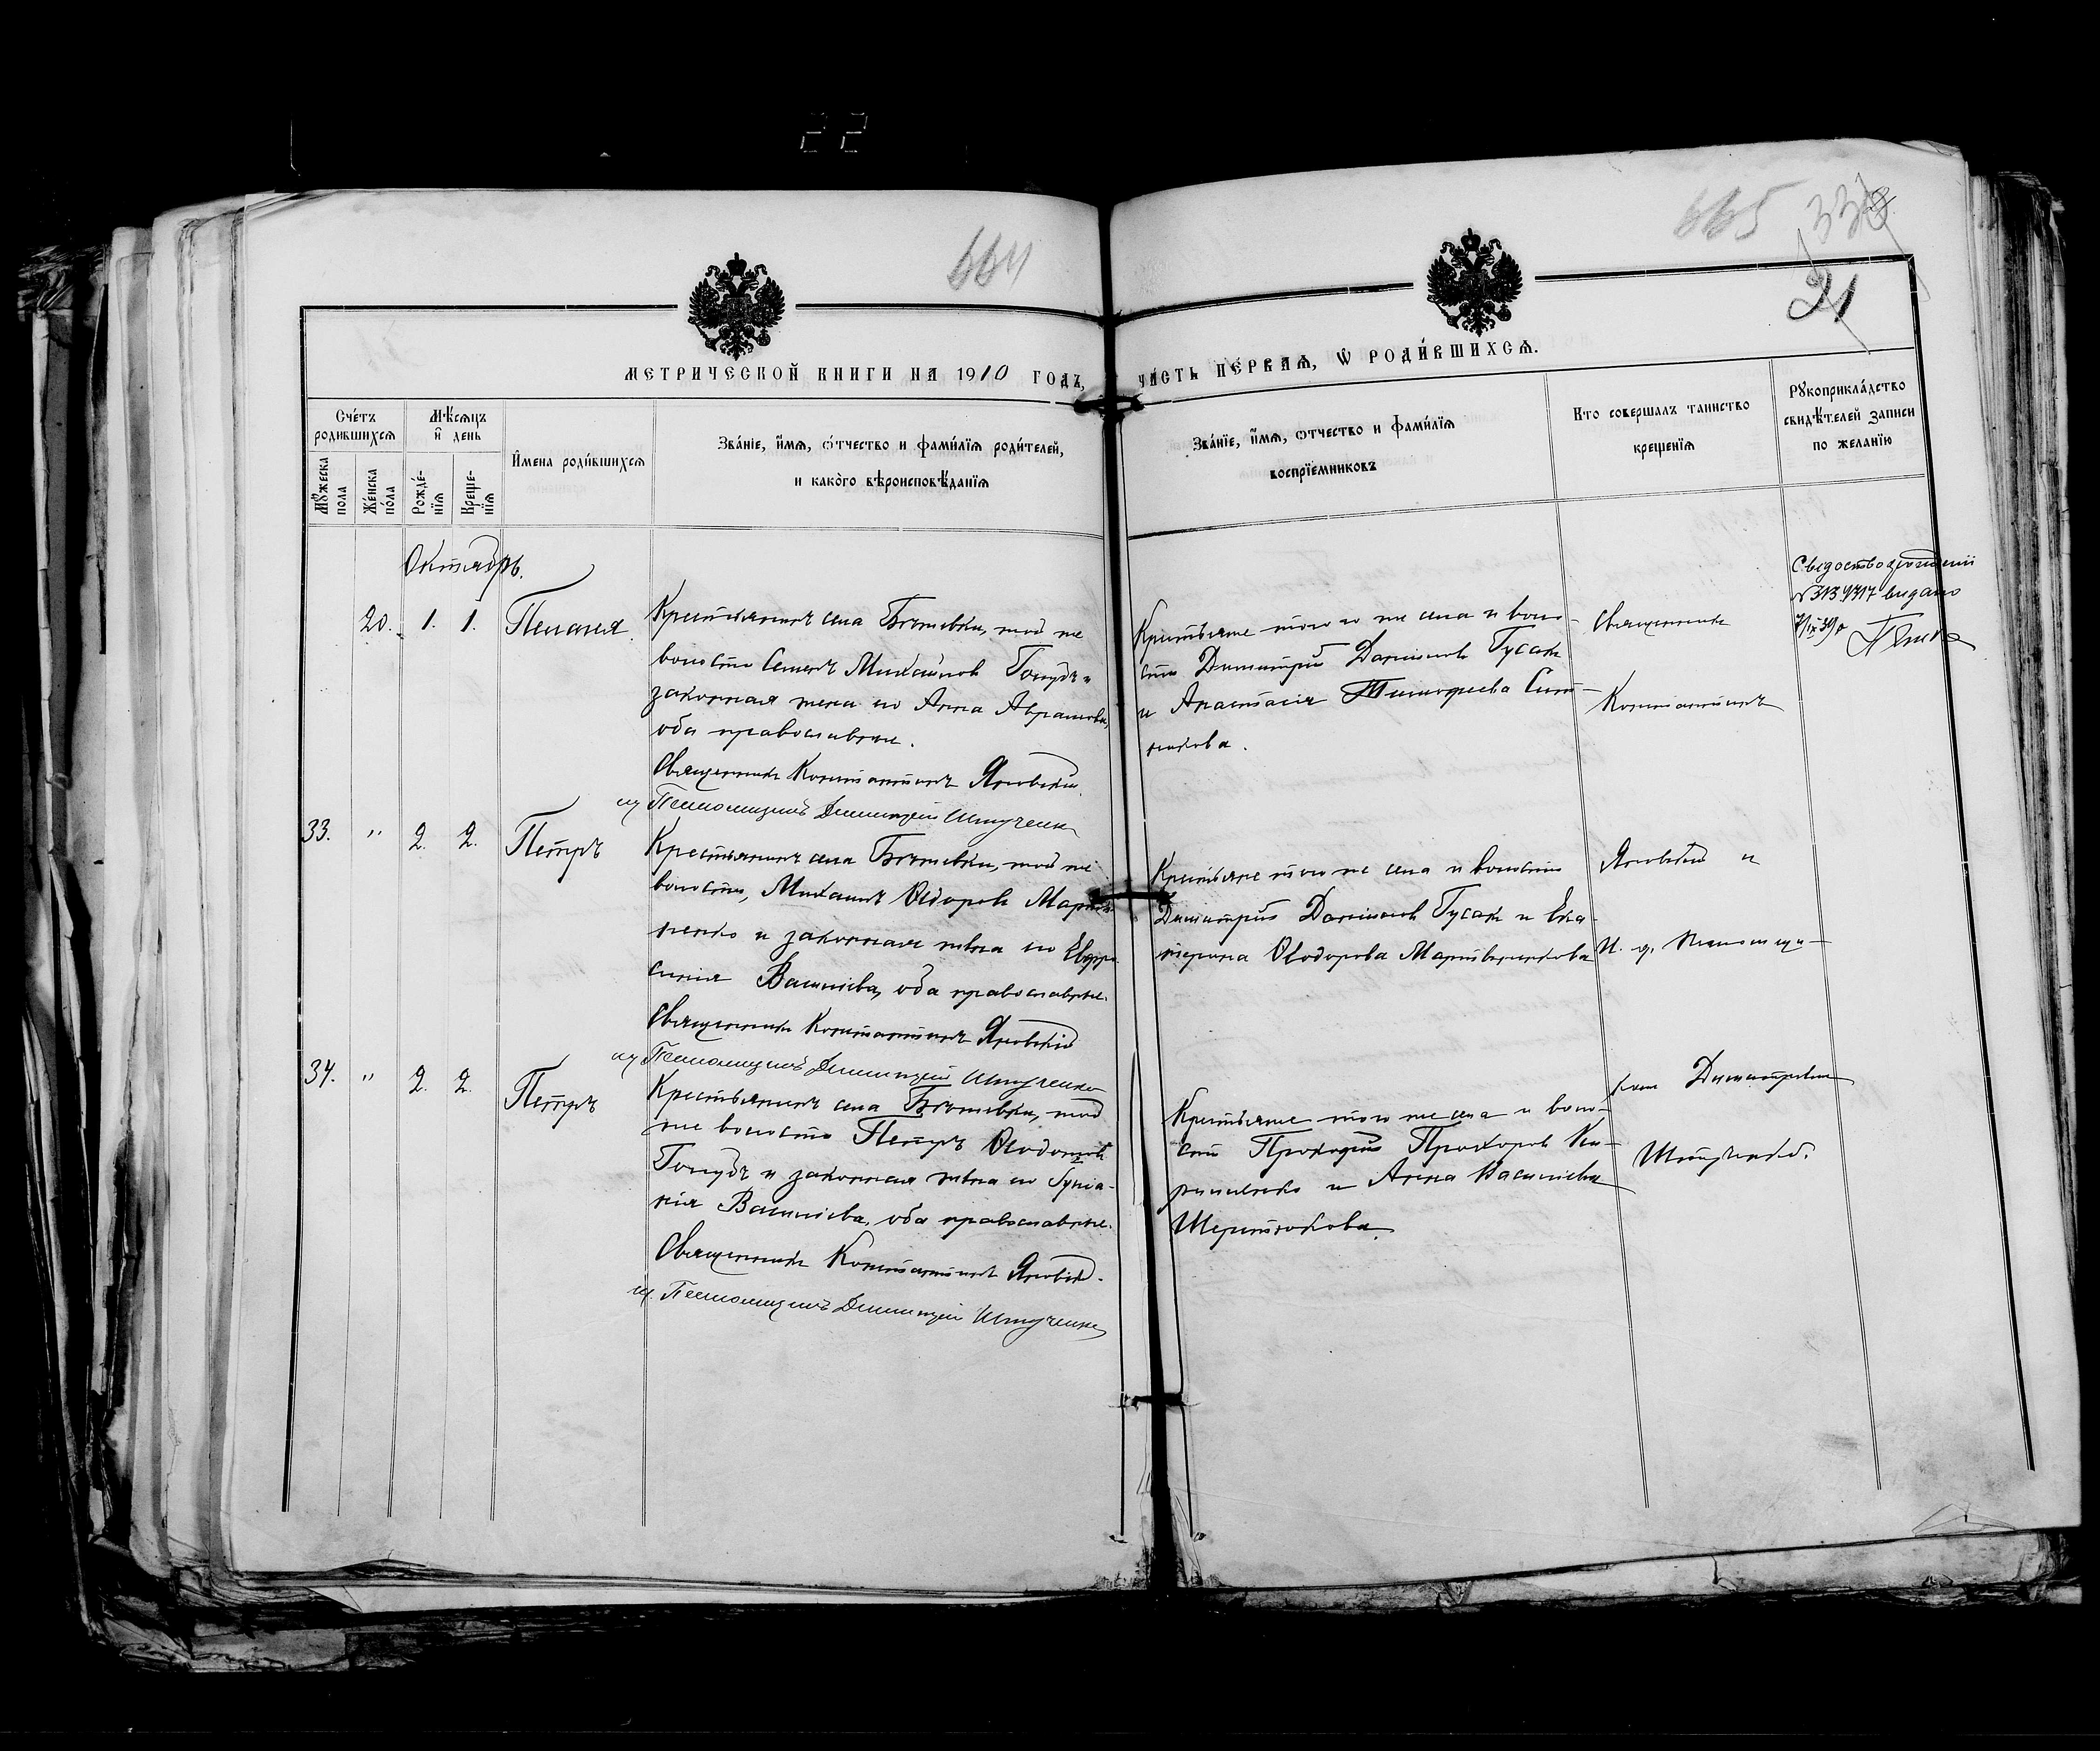 22
664
665
21
МЕТРИЧЕСКОЙ КНИГИ НА 1910 ГОДЪ,
ЧАСТЬ ПЕРВАЯ, Ѡ РОДИ́ВШИХСѦ.
Сче́тъ родившихсѧ
Мѣсѧцъ и҆ день
Мꙋ́жеска пола
Же́нска по́ла
Рожде́-нїѧ
Креще-нїѧ
И҆мена роди́вшихсѧ
Зва́нїе, и҆́мѧ, ѻ҆́тчество и фами́лїѧ роди́телей,
и како́гѡ вѣроисповѣ́данїѧ
Зва́нїе, и҆́мѧ, ѻтчество и фами́лїѧ
воспрїе́мниковъ
Кто совершалъ таинство
крещенїѧ
Рꙋкоприкла́дство
свидѣ́телей записи
по желанїю
Октябрь.
20. 1. 1. Пелагія.
Крестьянинъ села той же
волости Семенъ Михайловъ Голубъ и
законная жена его Анна Аврамова,
оба православные.
Священникъ Константинъ Яновскій.
Псаломщикъ Димитрій Штученко
Крестьяне того же села и воло-
сти Димитрій Даниловъ Гусак
и Анастасія Тимофеева Сит-
никова.
Священникъ
Константинъ
№ 313 выдано
33. " 2. 2. Петръ
Крестьянинъ села той же
волости, Михаилъ Ѳедоровъ
ненко и законная жена его Евфро-
синія Васильева, оба православные.
Священникъ Константинъ Яновскій
Псаломщикъ Димитрій Штученко
Крестьяне того же села и волости
Димитрій Даниловъ Гусак и Ека-
терина Ѳеодорова
Яновскій и
и. д. псаломщи-
34. " 2. 2. Петръ
Крестьянинъ села той
же волости Петръ
Голубъ и законная жена его
нія Васильева, оба православные.
Священникъ Константинъ Яновскій.
Псаломщикъ Димитрій Штученко
Крестьяне того же села и воло-
сти Прокофій Прохоровъ Ки-
риленко и Анна Васильева
Шерстюкова.
ком Димитріем
Штученко.